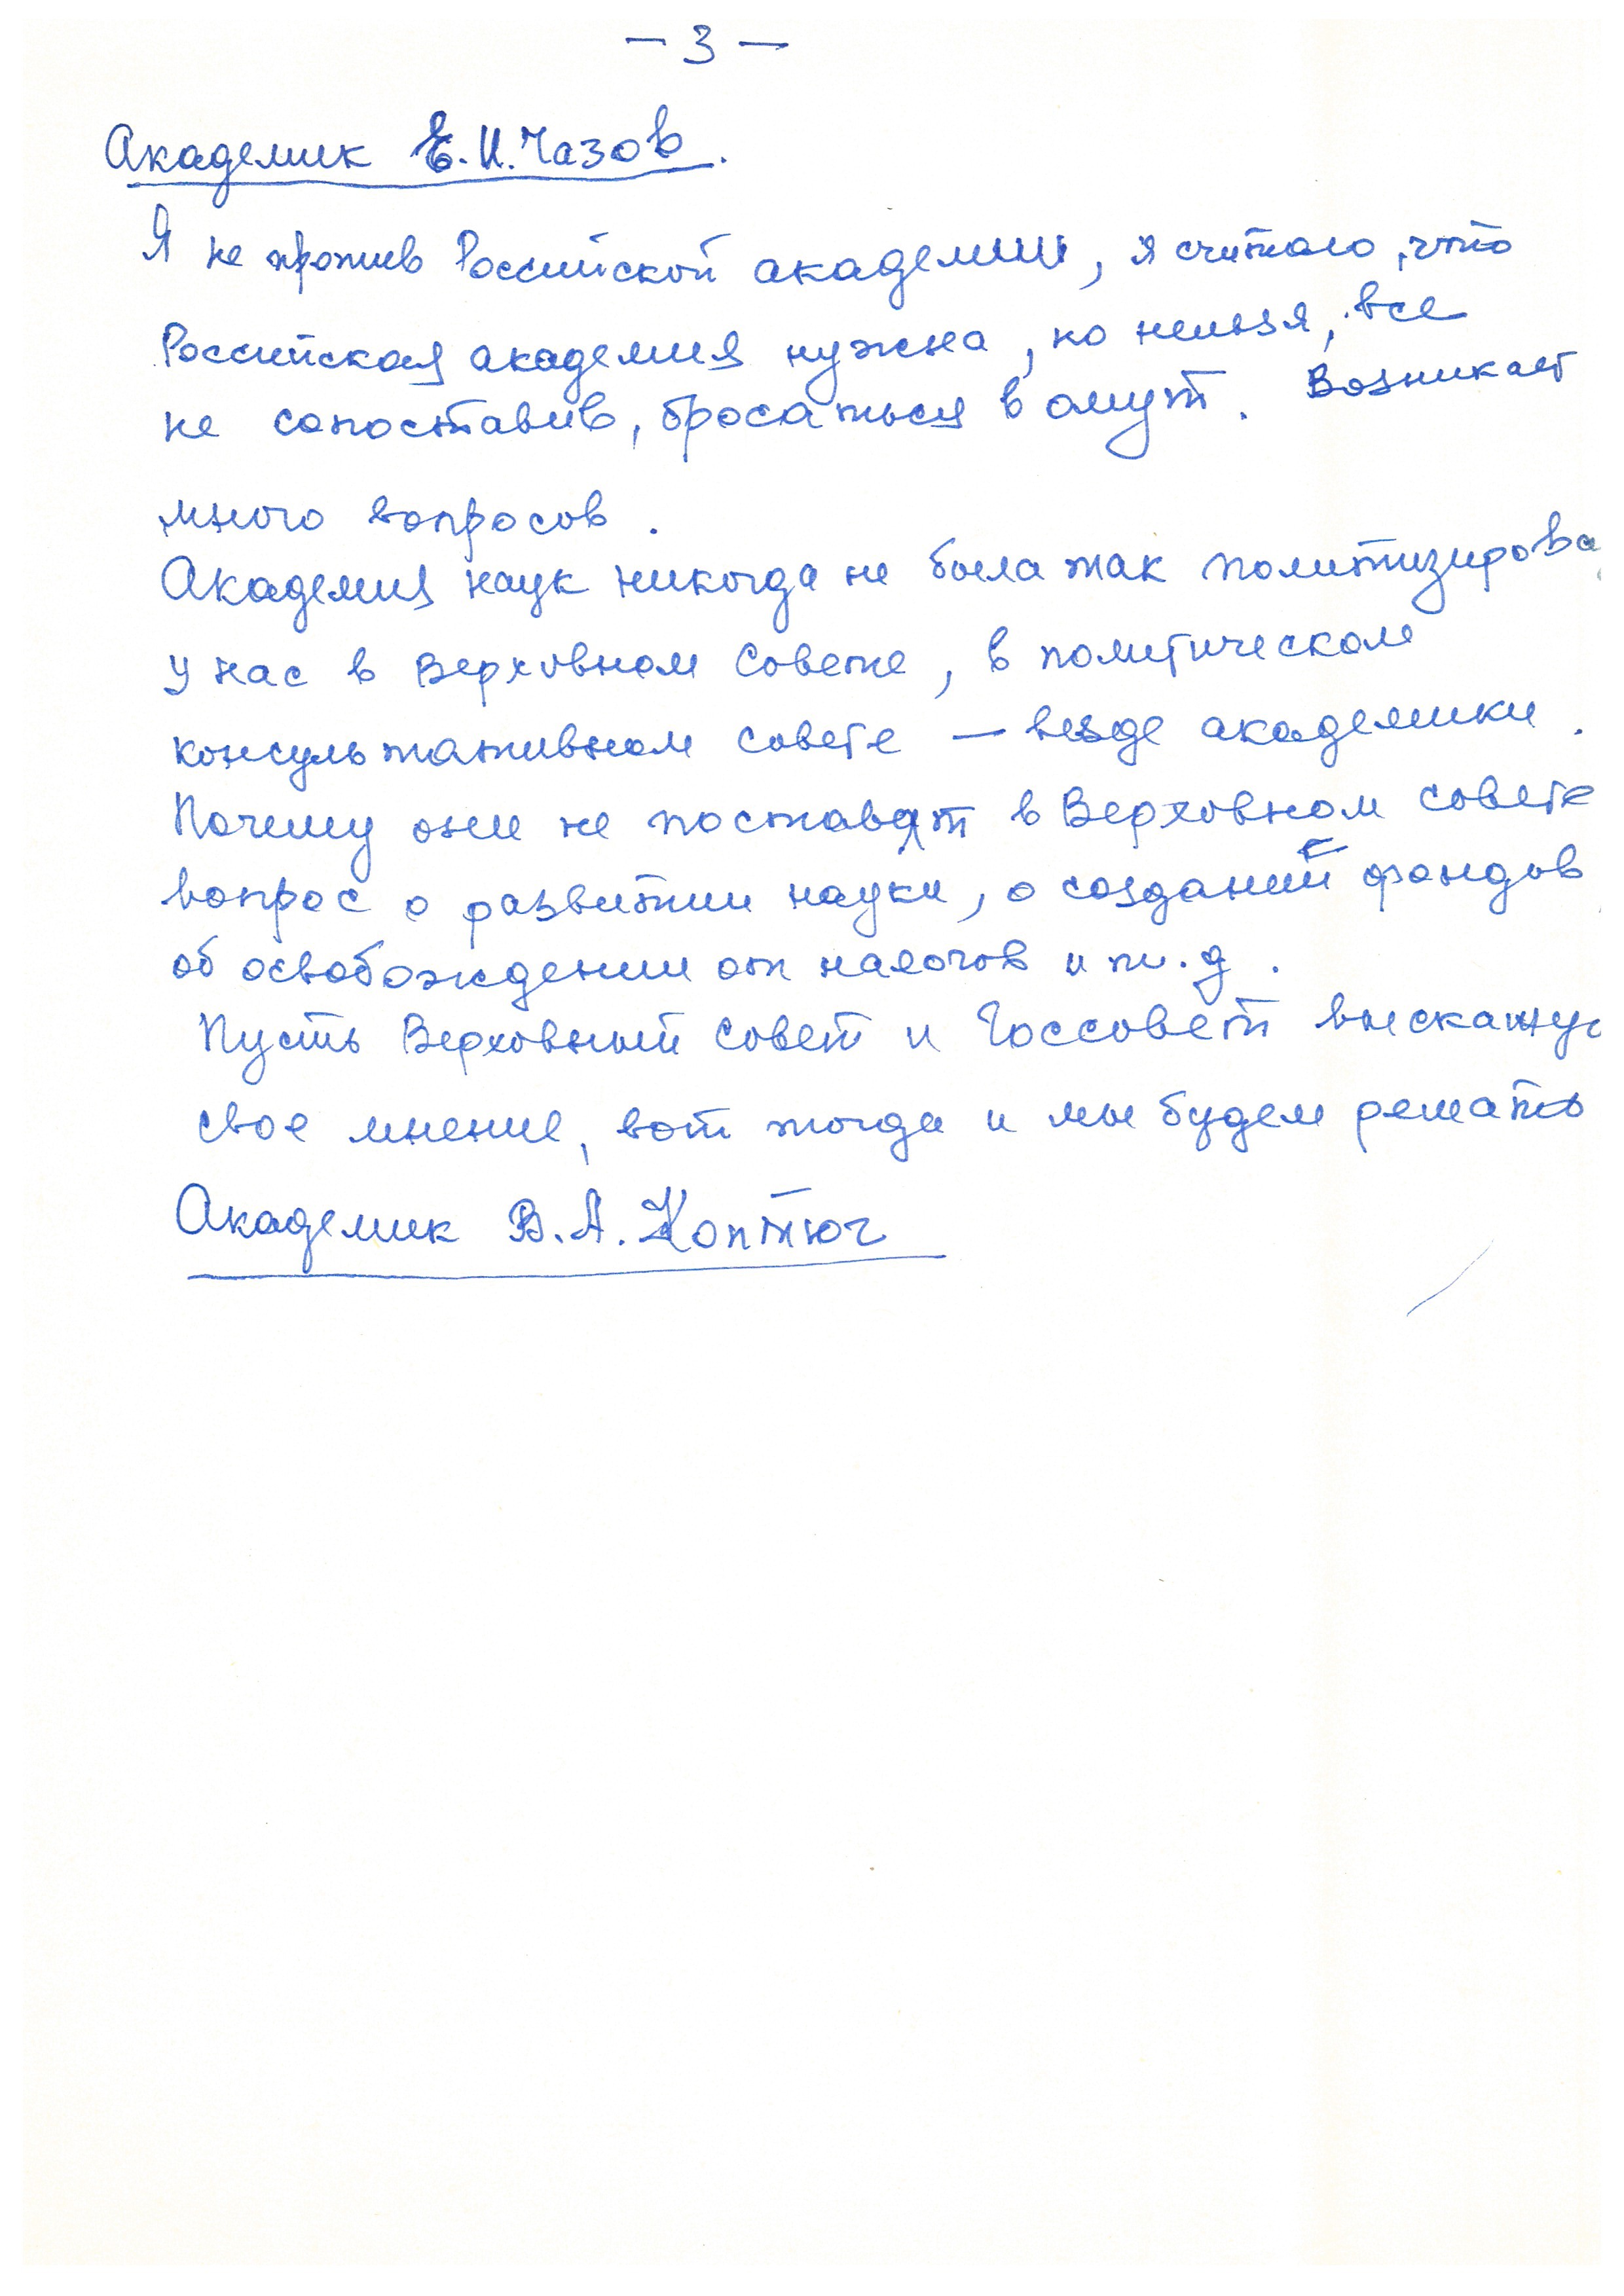 — 3 —
Академик Е.И. Чазов.
Я не против Российской академии, я считаю, что
Российская академия нужна, но нельзя, все
не сопоставив, бросаться в омут. Возникает
много вопросов.
Академия наук никогда не была так политизирова
У нас в Верховном Совете, в политическом
консультативном совете — везде академики.
Почему они не поставят в Верховном совете
вопрос о развитии науки, о создании фондов
об освобождении от налогов и т.д.
Пусть Верховный Совет и Госсовет выскажу
свое мнение, вот тогда и мы будем решать
Академик В.А. Коптюг